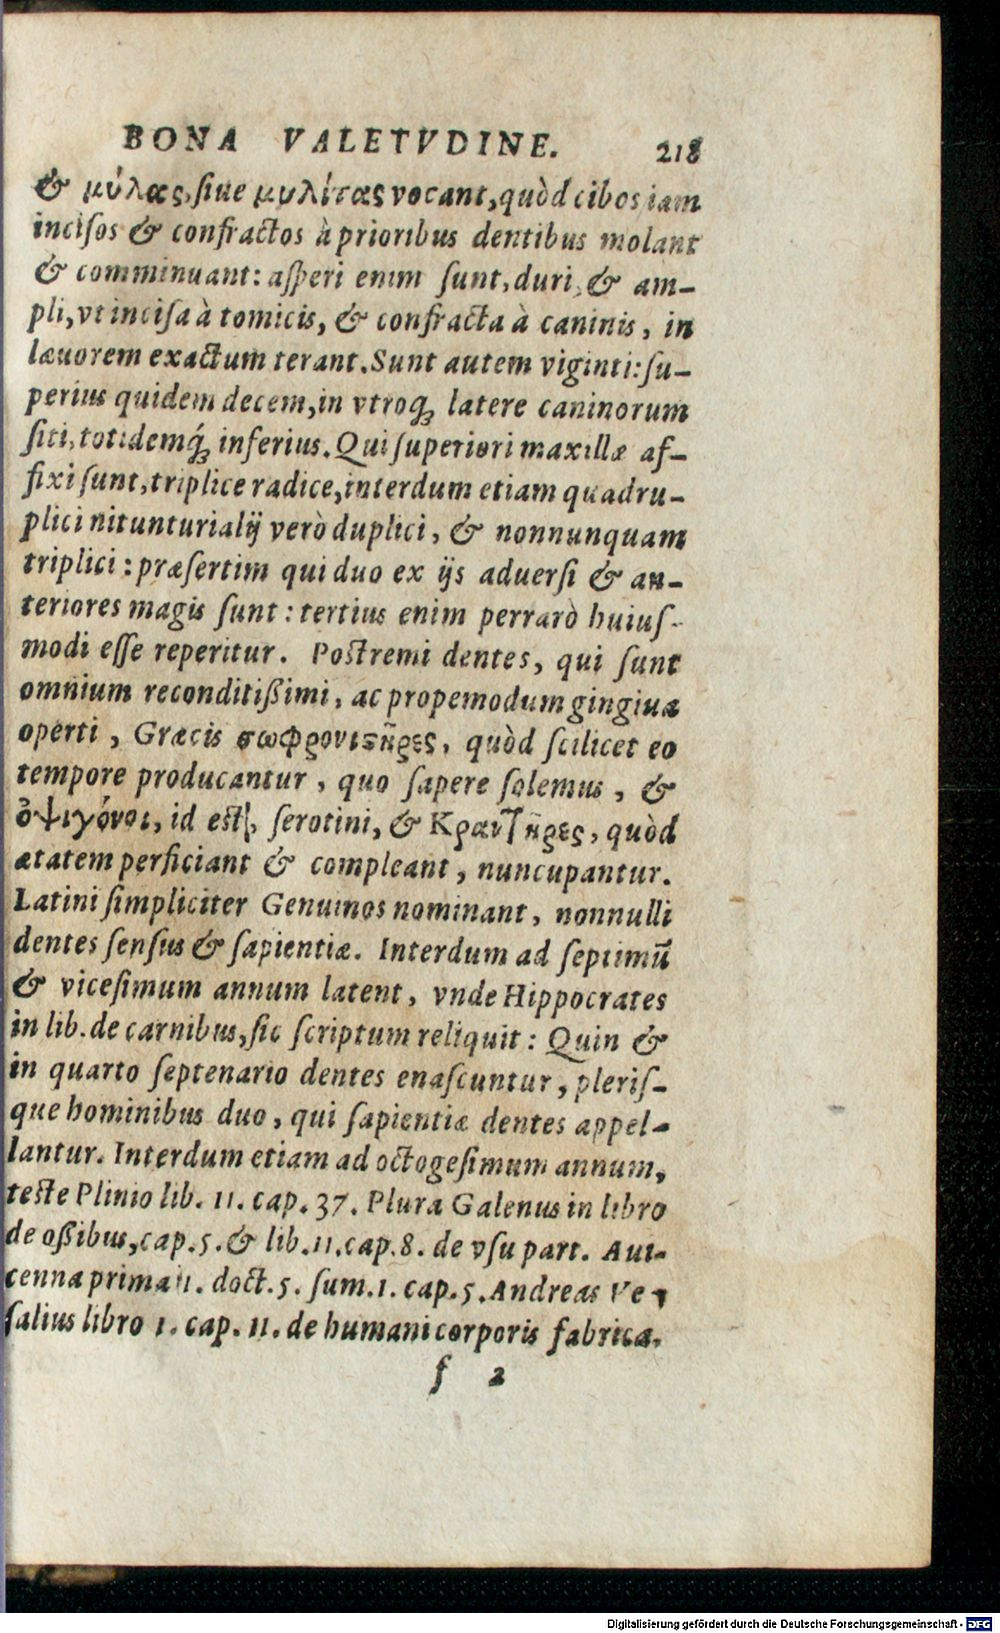 BONA VALETVDINE. 218
& μύλας, ſiue μυλίτας vocant, quòd cibos iam
inciſos & confractos à prioribus dentibus molant
& comminuant: aſperi enim ſunt, duri, & am-
pli, vt inciſa à tomicis, & confracta à caninis, in
læuorem exactum terant. Sunt autem viginti: ſu-
perius quidem decem, in vtroq; latere caninorum
ſiti, totidemq́; inferius. Qui ſuperiori maxillæ af-
fixi ſunt, triplice radice, interdum etiam quadru-
plici nituntur: alij verò duplici, & nonnunquam
triplici: præſertim qui duo ex ijs aduerſi & an-
teriores magis ſunt: tertius enim perrarò huiuſ-
modi eſſe reperitur. Poſtremi dentes, qui ſunt
omnium reconditißimi, ac propemodum gingiua
operti, Græcis σωφρονιϛῆρες, quòd ſcilicet eo
tempore producantur, quo ſapere ſolemus, &
ὀψιγόνοι, id eſt, ſerotini, & Κραντῆρες, quòd
ætatem perficiant & compleant, nuncupantur.
Latini ſimpliciter Genuinos nominant, nonnulli
dentes ſenſus & ſapientiæ. Interdum ad ſeptimũ
& viceſimum annum latent, vnde Hippocrates
in lib. de carnibus, ſic ſcriptum reliquit: Quin &
in quarto ſeptenario dentes enaſcuntur, pleriſ-
que hominibus duo, qui ſapientiæ dentes appel-
lantur. Interdum etiam ad octogeſimum annum,
teſte Plinio lib. 11. cap. 37. Plura Galenus in libro
de oßibus, cap. 5. & lib. 11. cap. 8. de vſu part. Aui-
cenna prima 1. doct. 5. ſum. 1. cap. 5. Andreas Ve-
ſalius libro 1. cap. 11. de humani corporis fabrica.
f 2
Digitalisierung gefördert durch die Deutsche Forschungsgemeinschaft - DFG